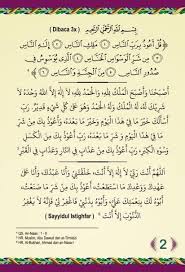 ( Dibaca 3x ) بِسْمِ اللَّهِ الرَّحْمٰنِ الرَّحِيْمِ
﴿ قُلْ أَعُوْذُ بِرَبِّ النَّاسِ ۝ مَلِكِ النَّاسِ ۝ إِلٰهِ النَّاسِ
۝ مِنْ شَرِّ الْوَسْوَاسِ الْخَنَّاسِ ۝ الَّذِيْ يُوَسْوِسُ فِيْ
صُدُوْرِ النَّاسِ ۝ مِنَ الْجِنَّةِ وَالنَّاسِ ۝ ﴾
أَصْبَحْنَا وَأَصْبَحَ الْمُلْكُ لِلّٰهِ، وَالْحَمْدُ لِلّٰهِ، لَا إِلٰهَ إِلَّا اللّٰهُ وَحْدَهُ لَا
شَرِيْكَ لَهُ، لَهُ الْمُلْكُ وَلَهُ الْحَمْدُ وَهُوَ عَلَى كُلِّ شَيْءٍ قَدِيْرٌ.
رَبِّ أَسْأَلُكَ خَيْرَ مَا فِيْ هٰذَا الْيَوْمِ وَخَيْرَ مَا بَعْدَهُ، وَأَعُوْذُ بِكَ
مِنْ شَرِّ مَا فِيْ هٰذَا الْيَوْمِ وَشَرِّ مَا بَعْدَهُ، رَبِّ أَعُوْذُ بِكَ مِنَ
الْكَسَلِ وَسُوْءِ الْكِبَرِ، رَبِّ أَعُوْذُ بِكَ مِنْ عَذَابٍ فِي النَّارِ
وَعَذَابٍ فِي الْقَبْرِ.
اَللّٰهُمَّ أَنْتَ رَبِّيْ لَا إِلٰهَ إِلَّا أَنْتَ، خَلَقْتَنِيْ وَأَنَا عَبْدُكَ، وَأَنَا عَلَى
عَهْدِكَ وَوَعْدِكَ مَا اسْتَطَعْتُ، أَعُوْذُ بِكَ مِنْ شَرِّ مَا
صَنَعْتُ، أَبُوْءُ لَكَ بِنِعْمَتِكَ عَلَيَّ، وَأَبُوْءُ بِذَنْبِيْ فَاغْفِرْ لِيْ فَإِنَّهُ لَا يَغْفِرُ
( Sayyidul Istighfar ) الذُّنُوْبَ إِلَّا أَنْتَ
QS. An-Naas: 1 - 6
HR. Muslim, Abu Dawud dan at-Tirmidzi
HR. Al-Bukhari, Ahmad dan an-Nasa'i
2